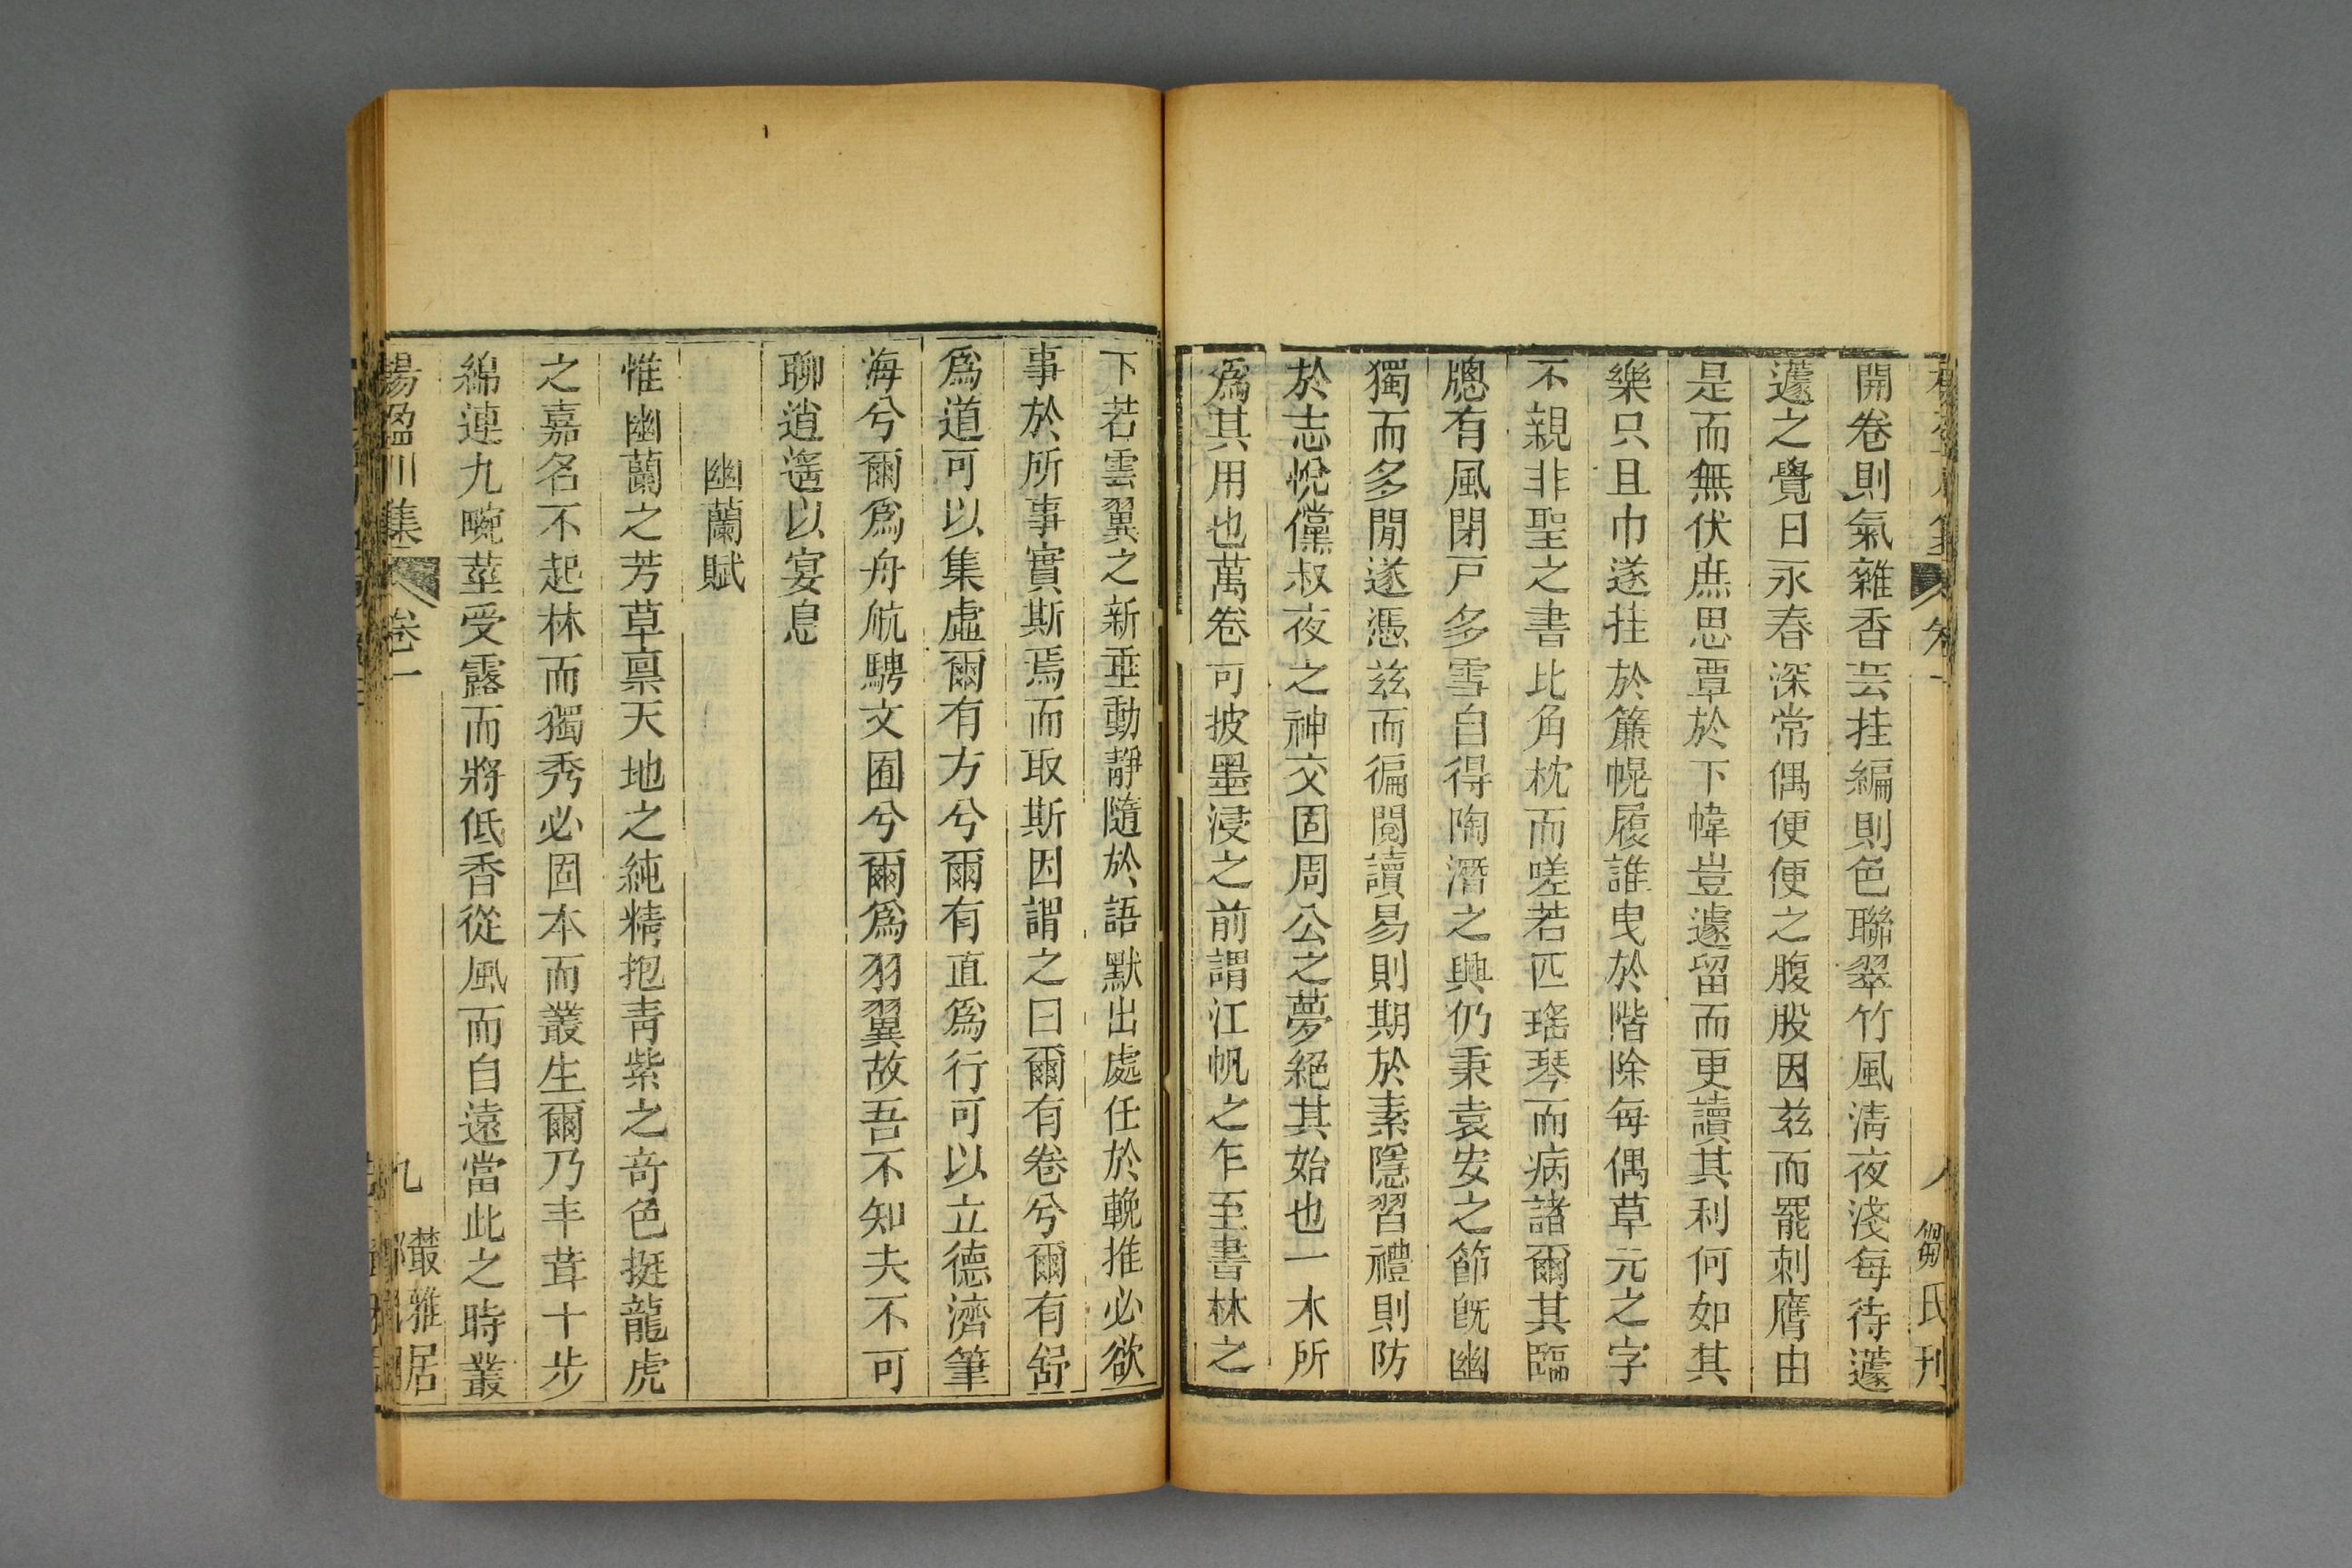 開卷則氣雜香芸挂編則色聯翠竹風清夜淺每待蘧
蘧之覺日永春深常偶便便之腹股因兹而罷刺膺由
是而無伏庶思覃於下幃豈遽留而更讀其利何如其
樂只且巾遂挂於簾幌履誰曳於階除每偶草元之字
不親非聖之書比角枕而嗟若匹瑤琴而病諸爾其臨
牕有風閉戸多雪自得陶潛之興仍秉袁安之節旣幽
獨而多閒遂憑兹而徧閱讀易則期於素隱習禮則防
於志悅儻叔夜之神交固周公之夢絕其始也一木所
爲其用也萬卷可披墨浸之前謂江帆之乍至書林之
下若雲翼之新垂動靜隨於語默出處任於輓推必欲
事於所事實斯焉而取斯因謂之曰爾有卷兮爾有舒
爲道可以集虛爾有方兮爾有直爲行可以立德濟筆
海兮爾爲舟航騁文囿兮爾爲羽翼故吾不知夫不可
聊逍遙以宴息
幽蘭賦
惟幽蘭之芳草稟天地之純精抱靑紫之竒色挺龍虎
之嘉名不起林而獨秀必固本而叢生爾乃丰茸十步
綿連九畹莖受露而將低香從風而自遠當此之時叢
楊盈川集 卷一
九 叢雅居
鄒氏刊